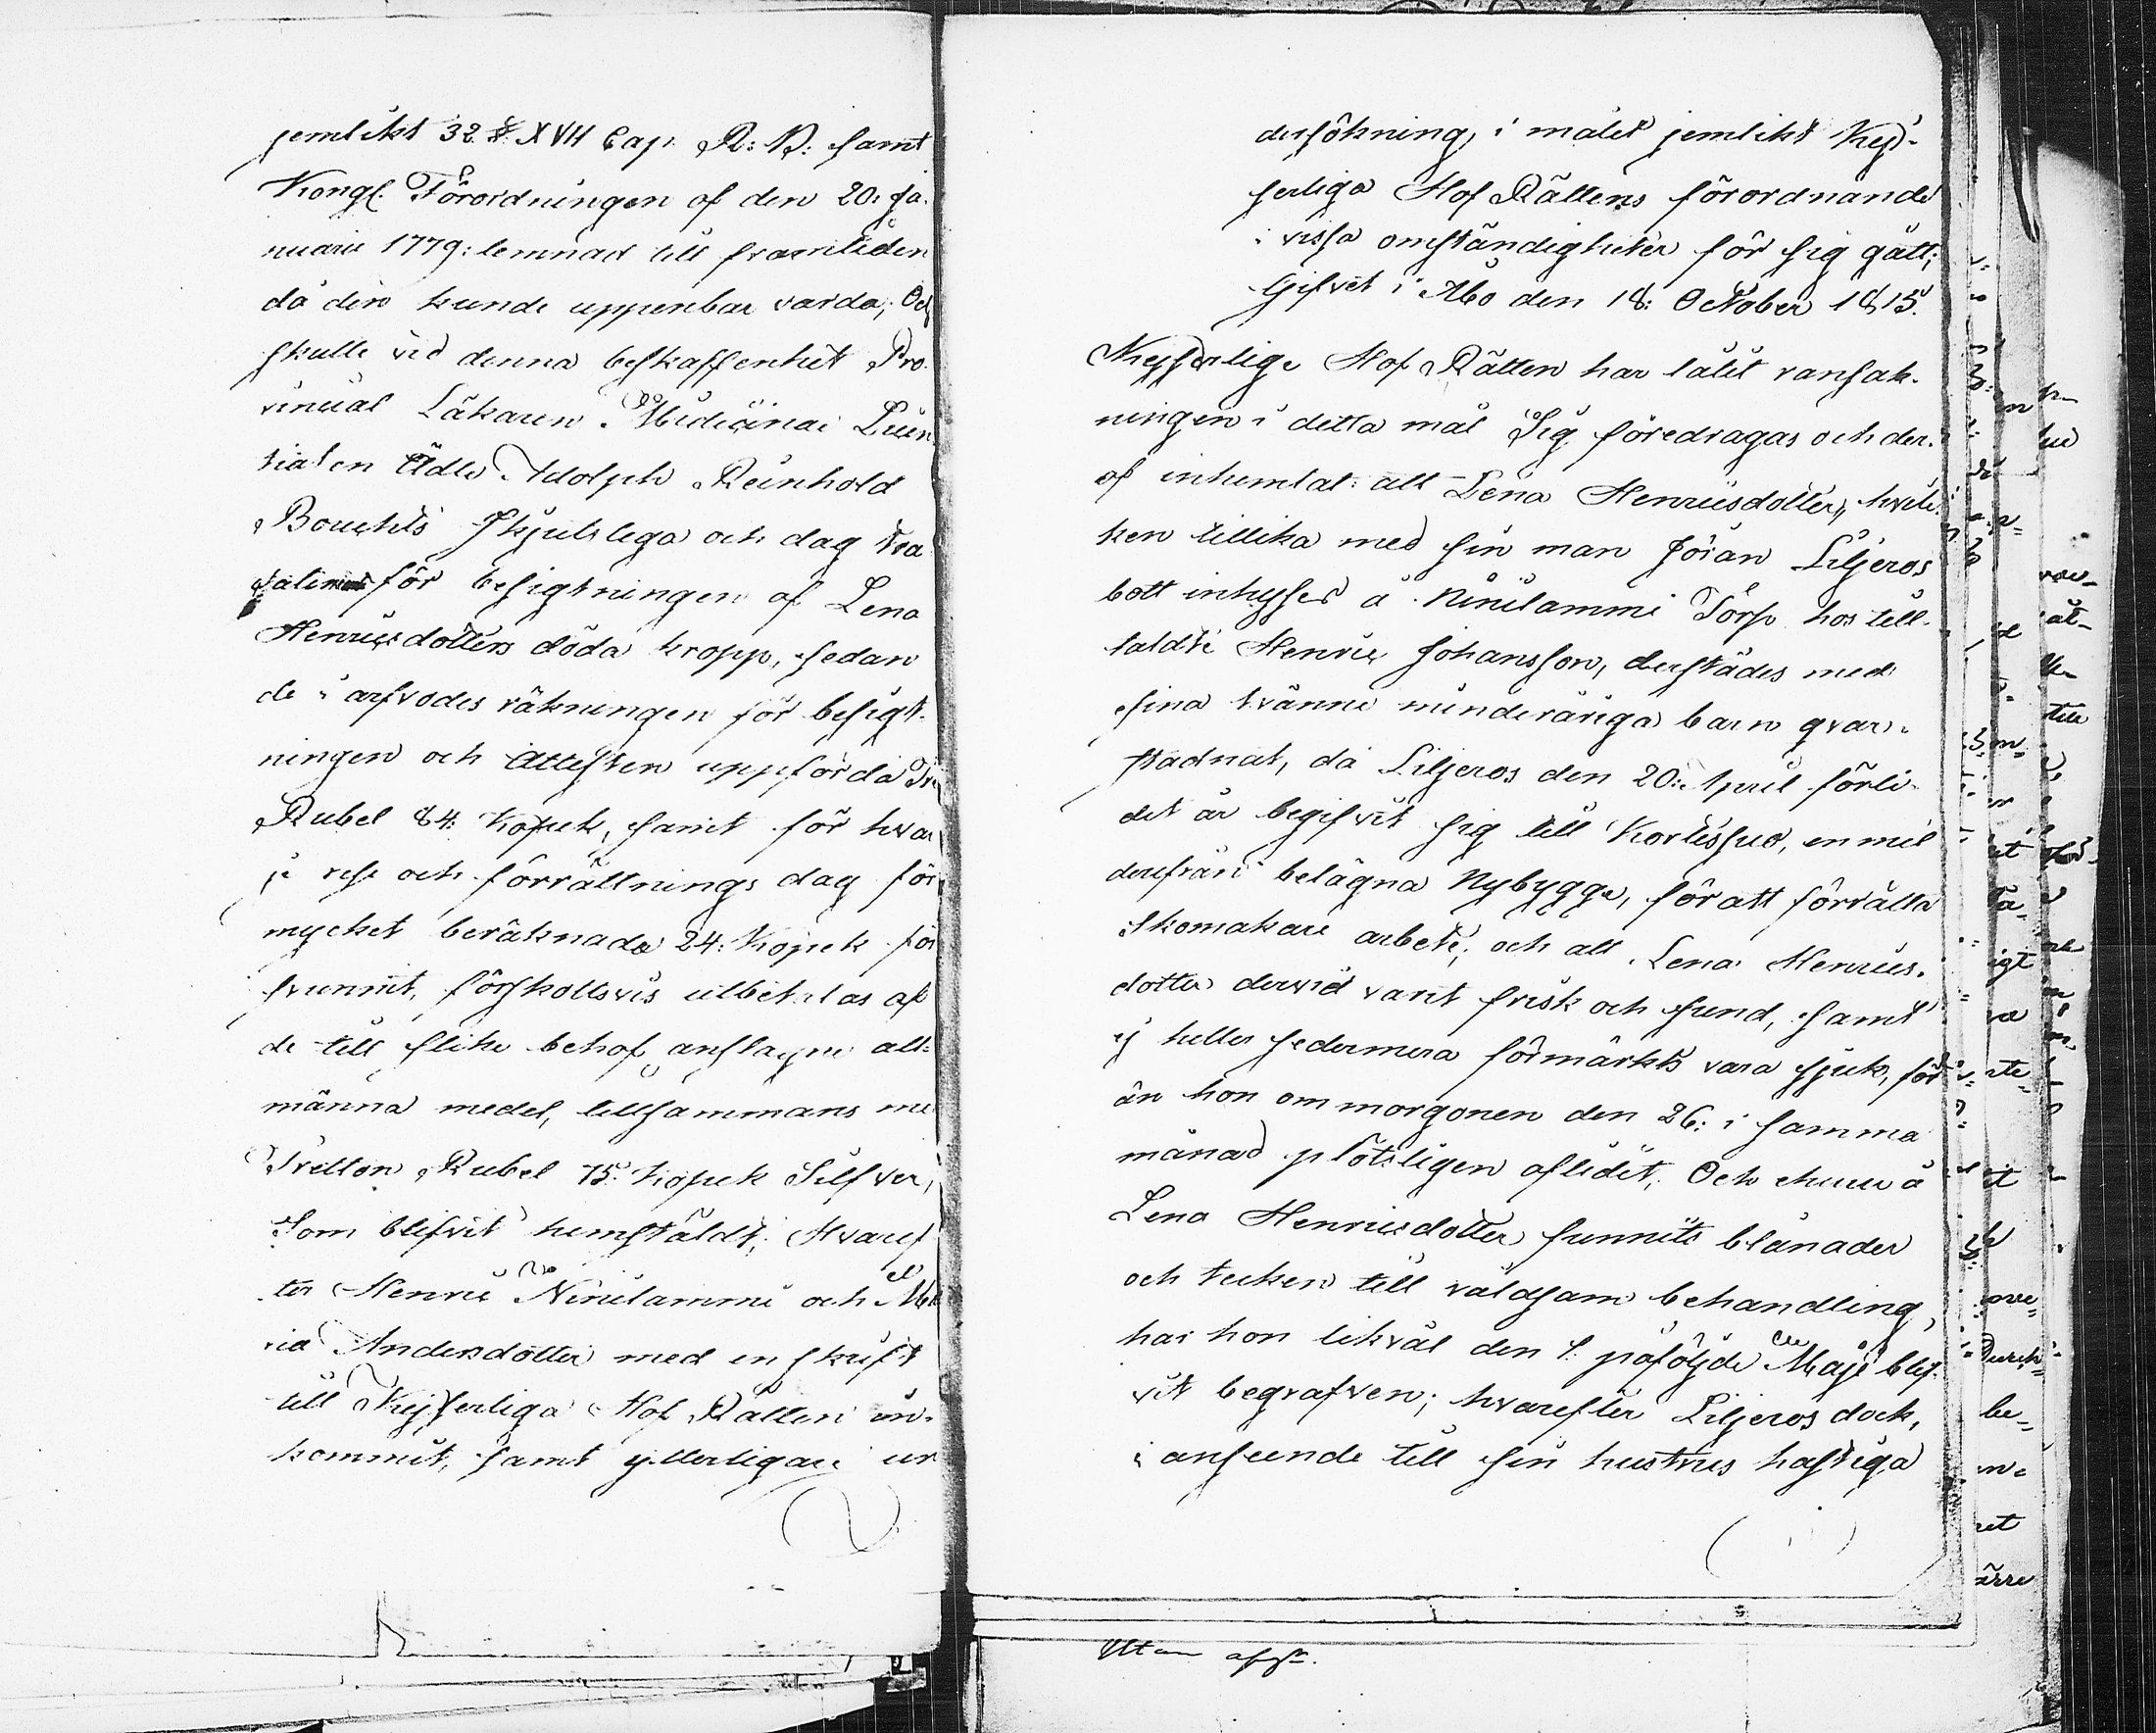 jemlikt 32 §. XVII Cap. R: B: samt
Kongl. Förordningen af den 20: Ja-
nuarii 1779: lemnad till framtiden
då den kunde uppenbar varda; Och
skulle vid denna beskaffenhet Pro-
vincial Läkaren Medicinae Licen-
tiaten Ädle Adolph Reinhold
Bouchts skjutslega och dag tra-
för besigtningen af Lena
Henricsdotters döda kropp, sedan
de i arfvodes räkningen för besigt-
ningen och Attesten uppförda Tre
Rubel 84: Kopek, samt för hvar
je rese och förrättnings dag för
mycket beräknade 24: Kopek för
svunnit, förskottsvis utbetalas af
de till slike behof anslagne all-
männa medel, tillsammans med
Tretton Rubel 75: Kopek Silfver,
Som blifvit hemstäldt; Hvaref
ter Henric Niinilammi och Ma
ria Andersdotter med en skrift
till Kejserliga Hof Rätten in-
kommit, samt ytterligare un
dersökning i målet jemlikt Kej-
serliga Hof Rättens förordnande
i vissa omständigheter för sig gått;
Gifvet i Åbo den 18: October 1815.
Kejserlige Hof Rätten har låtit ransak-
ningen i detta mål Sig föredragas och der-
af inhemtat: att Lena Henricsdotter, hvil-
ken tillika med sin man Jöran Liljeros
bott inhyses å Niinilammi Torp hos till-
taldte Henric Johansson, derstädes med
sina tvänne minderåriga barn qvar-
stadnat, då Liljeros den 20: April förli-
det år begifvit sig till Kortissuo, en mil
derifrån belägna Nybygge, för att förrätta
Skomakare arbete; och att Lena Henrics-
dotter dervid varit frisk och sund, samt
ej heller sedermera förmärkts vara sjuk, för
än hon om morgonen den 26: i samma
månad plötsligen aflidit; Och ehuru å
Lena Henricsdotter funnits blånader
och tecken till våldsam behandling,
har hon likväl den 1: påföljde Maji blif-
vit begrafven; hvarefter Liljeros dock,
i anseende till sin hustrus hastiga